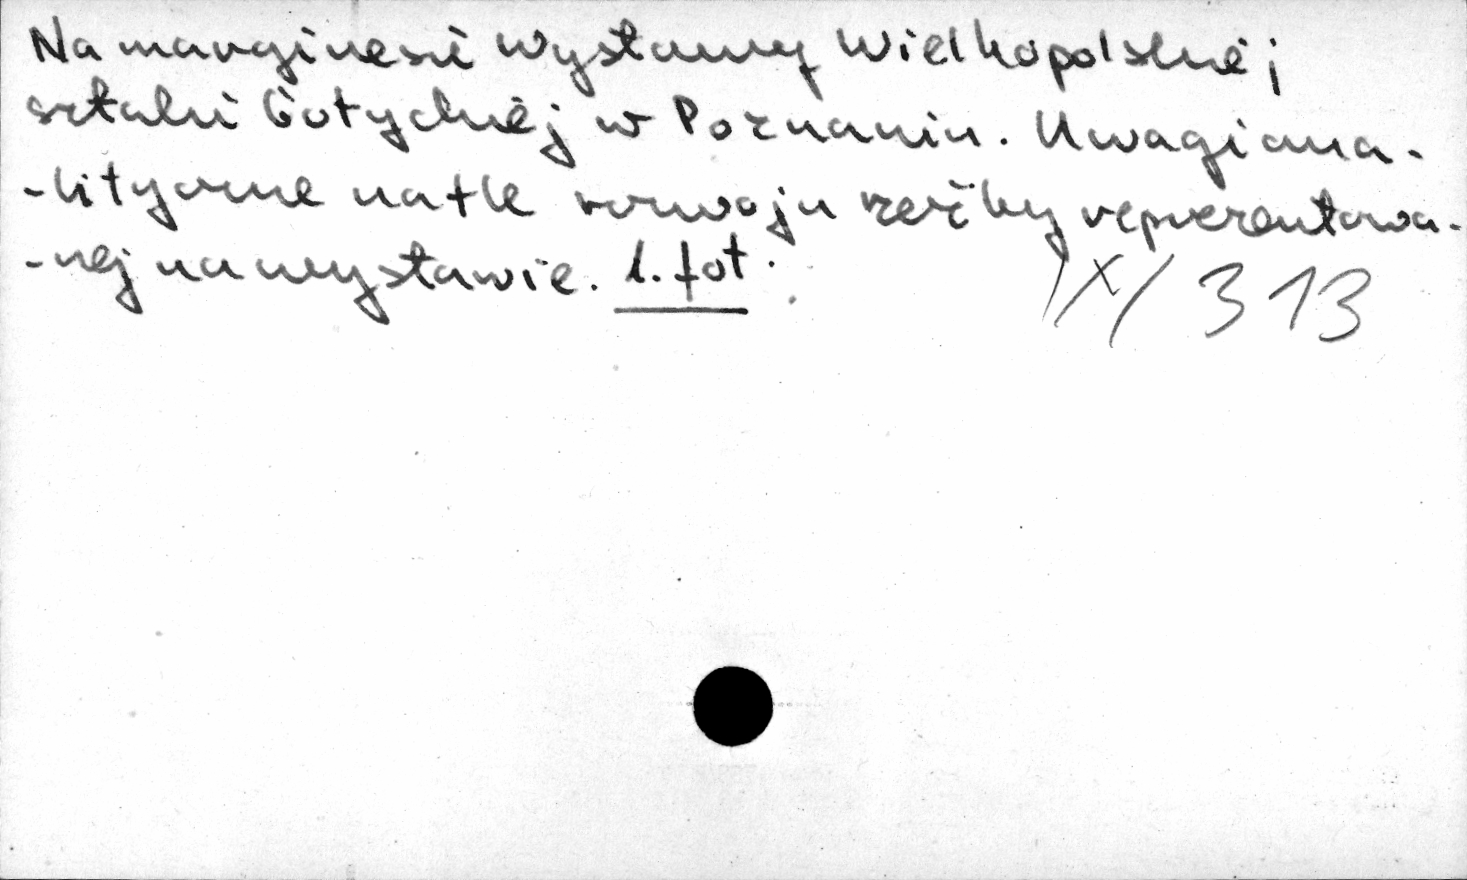 Na marginesie Wystawy Wielkopolskiej
sztuki Gotyckiej w Poznaniu. Uwagi ana-
-lityczne na tle rozwoju rzeźby reprezentowa-
-nej na wystawie. 1. fot.
IX/313